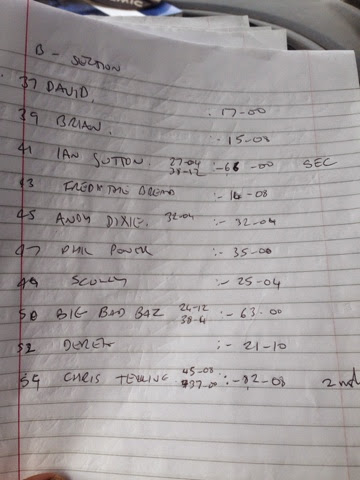 B - SECTION
37 DAVID. :- 17-00
39 BRIAN. :- 15-08
41 IAN SUTTON. 27-04 38-12 :- 66-00 SEC
43 FREDK THE BREAD :- 16-08
45 ANDY DIXIE. 32-04 :- 32-04
47 PHIL :- 35-00
49 SCULLY :- 25-04
50 BIG BAD BAZ 24-12 38-4 :- 63-00
52 DEREK :- 21-10
54 CHRIS 45-08 37-00 :- 82-08 2nd